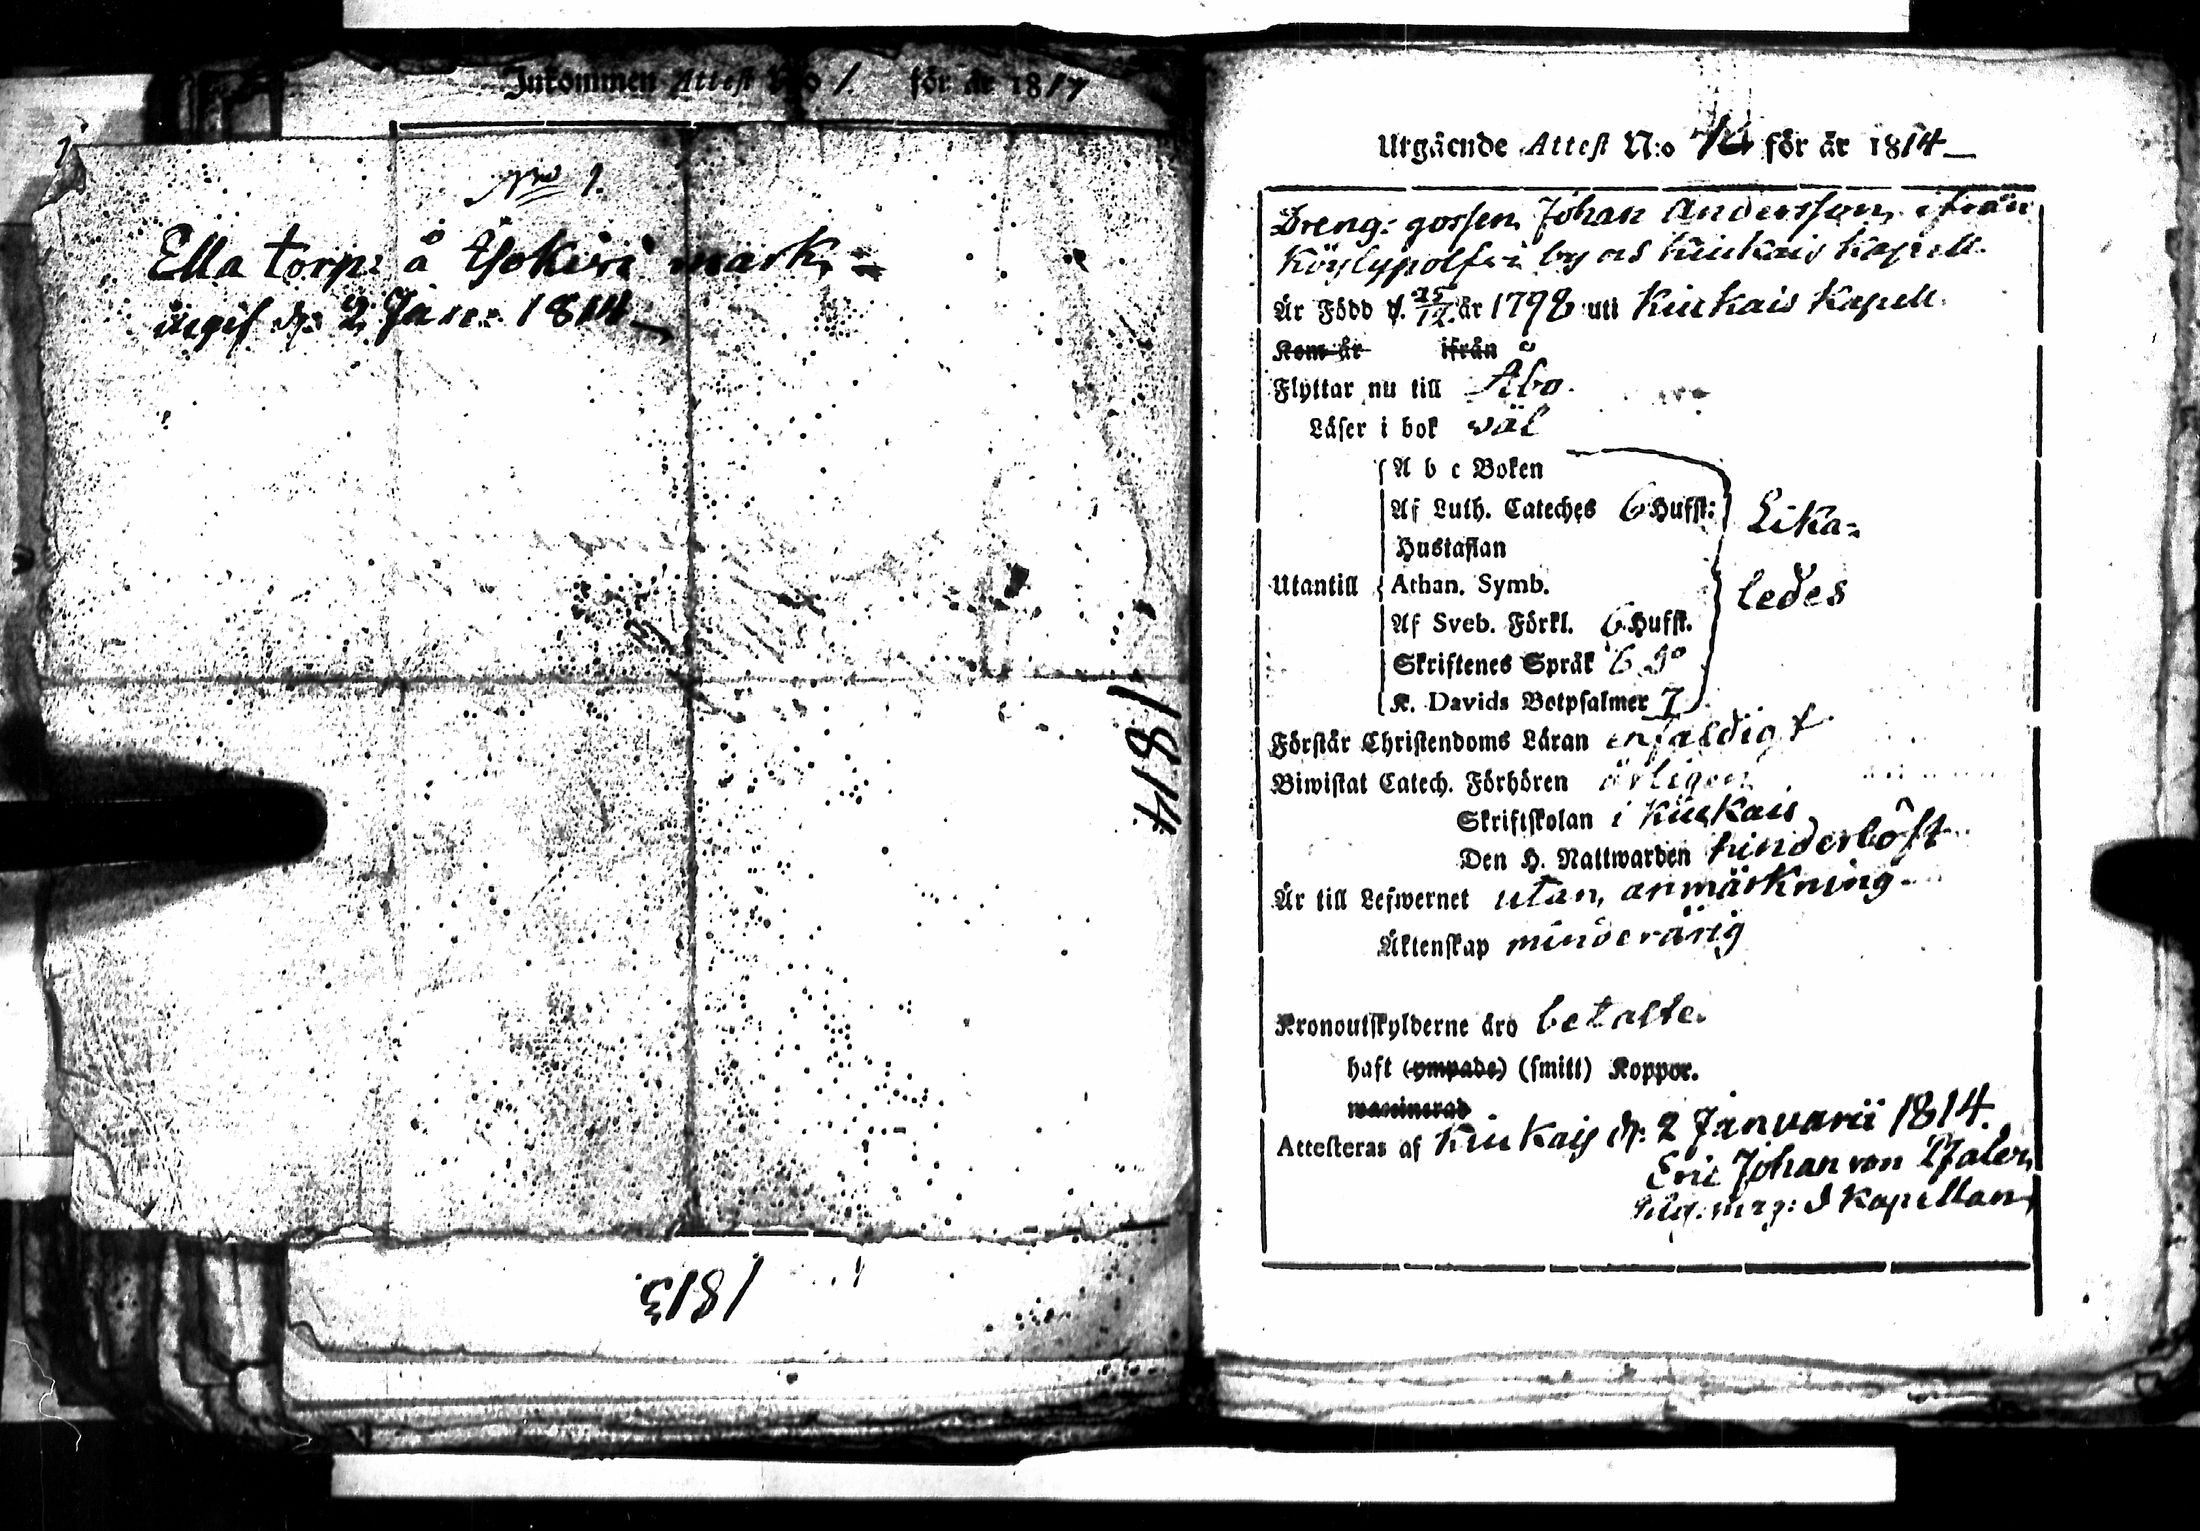 Inkommen Attest N:o 1. för år 1814
No 1.
Ella torp: å Yokiri mark
ingif d: 2 Jan: 1814
1814
1813.
Utgående Attest N:o för år 1814
Dreng-gossen Johan Andersson, ifrån
Köylypolfvi by as Kiukais Kapell.
Är Född d. 25/12 år 1798 uti Kiukais Kapell.
Kom år ifrån
Flyttar nu till Åbo.
Läser i bok wäl
A b c Boken
Af Luth. Cateches 6 Hufst:
Lika-
Hustaflan
Utantill Athan. Symb.
ledes
Af Sveb. Förkl. 6 Hufst.
Skriftenes Språk 6 do
K. Davids Botpsalmer 7
Förstår Christendoms Läran enfaldigt
Biwistat Catech. Förhören årligen
Skriftskolan i Kiukais
Den H. Nattwarden hinderlöst
Är till Lefwernet utan anmärkning
Äktenskap minderårig
Kronoutskylderne äro betalte.
haft (ympade) (smitt) Koppor.
waccinerad
Attesteras af Kiukais d: 2 Januarii 1814.
Eric Johan von Pfaler,
Kapellan